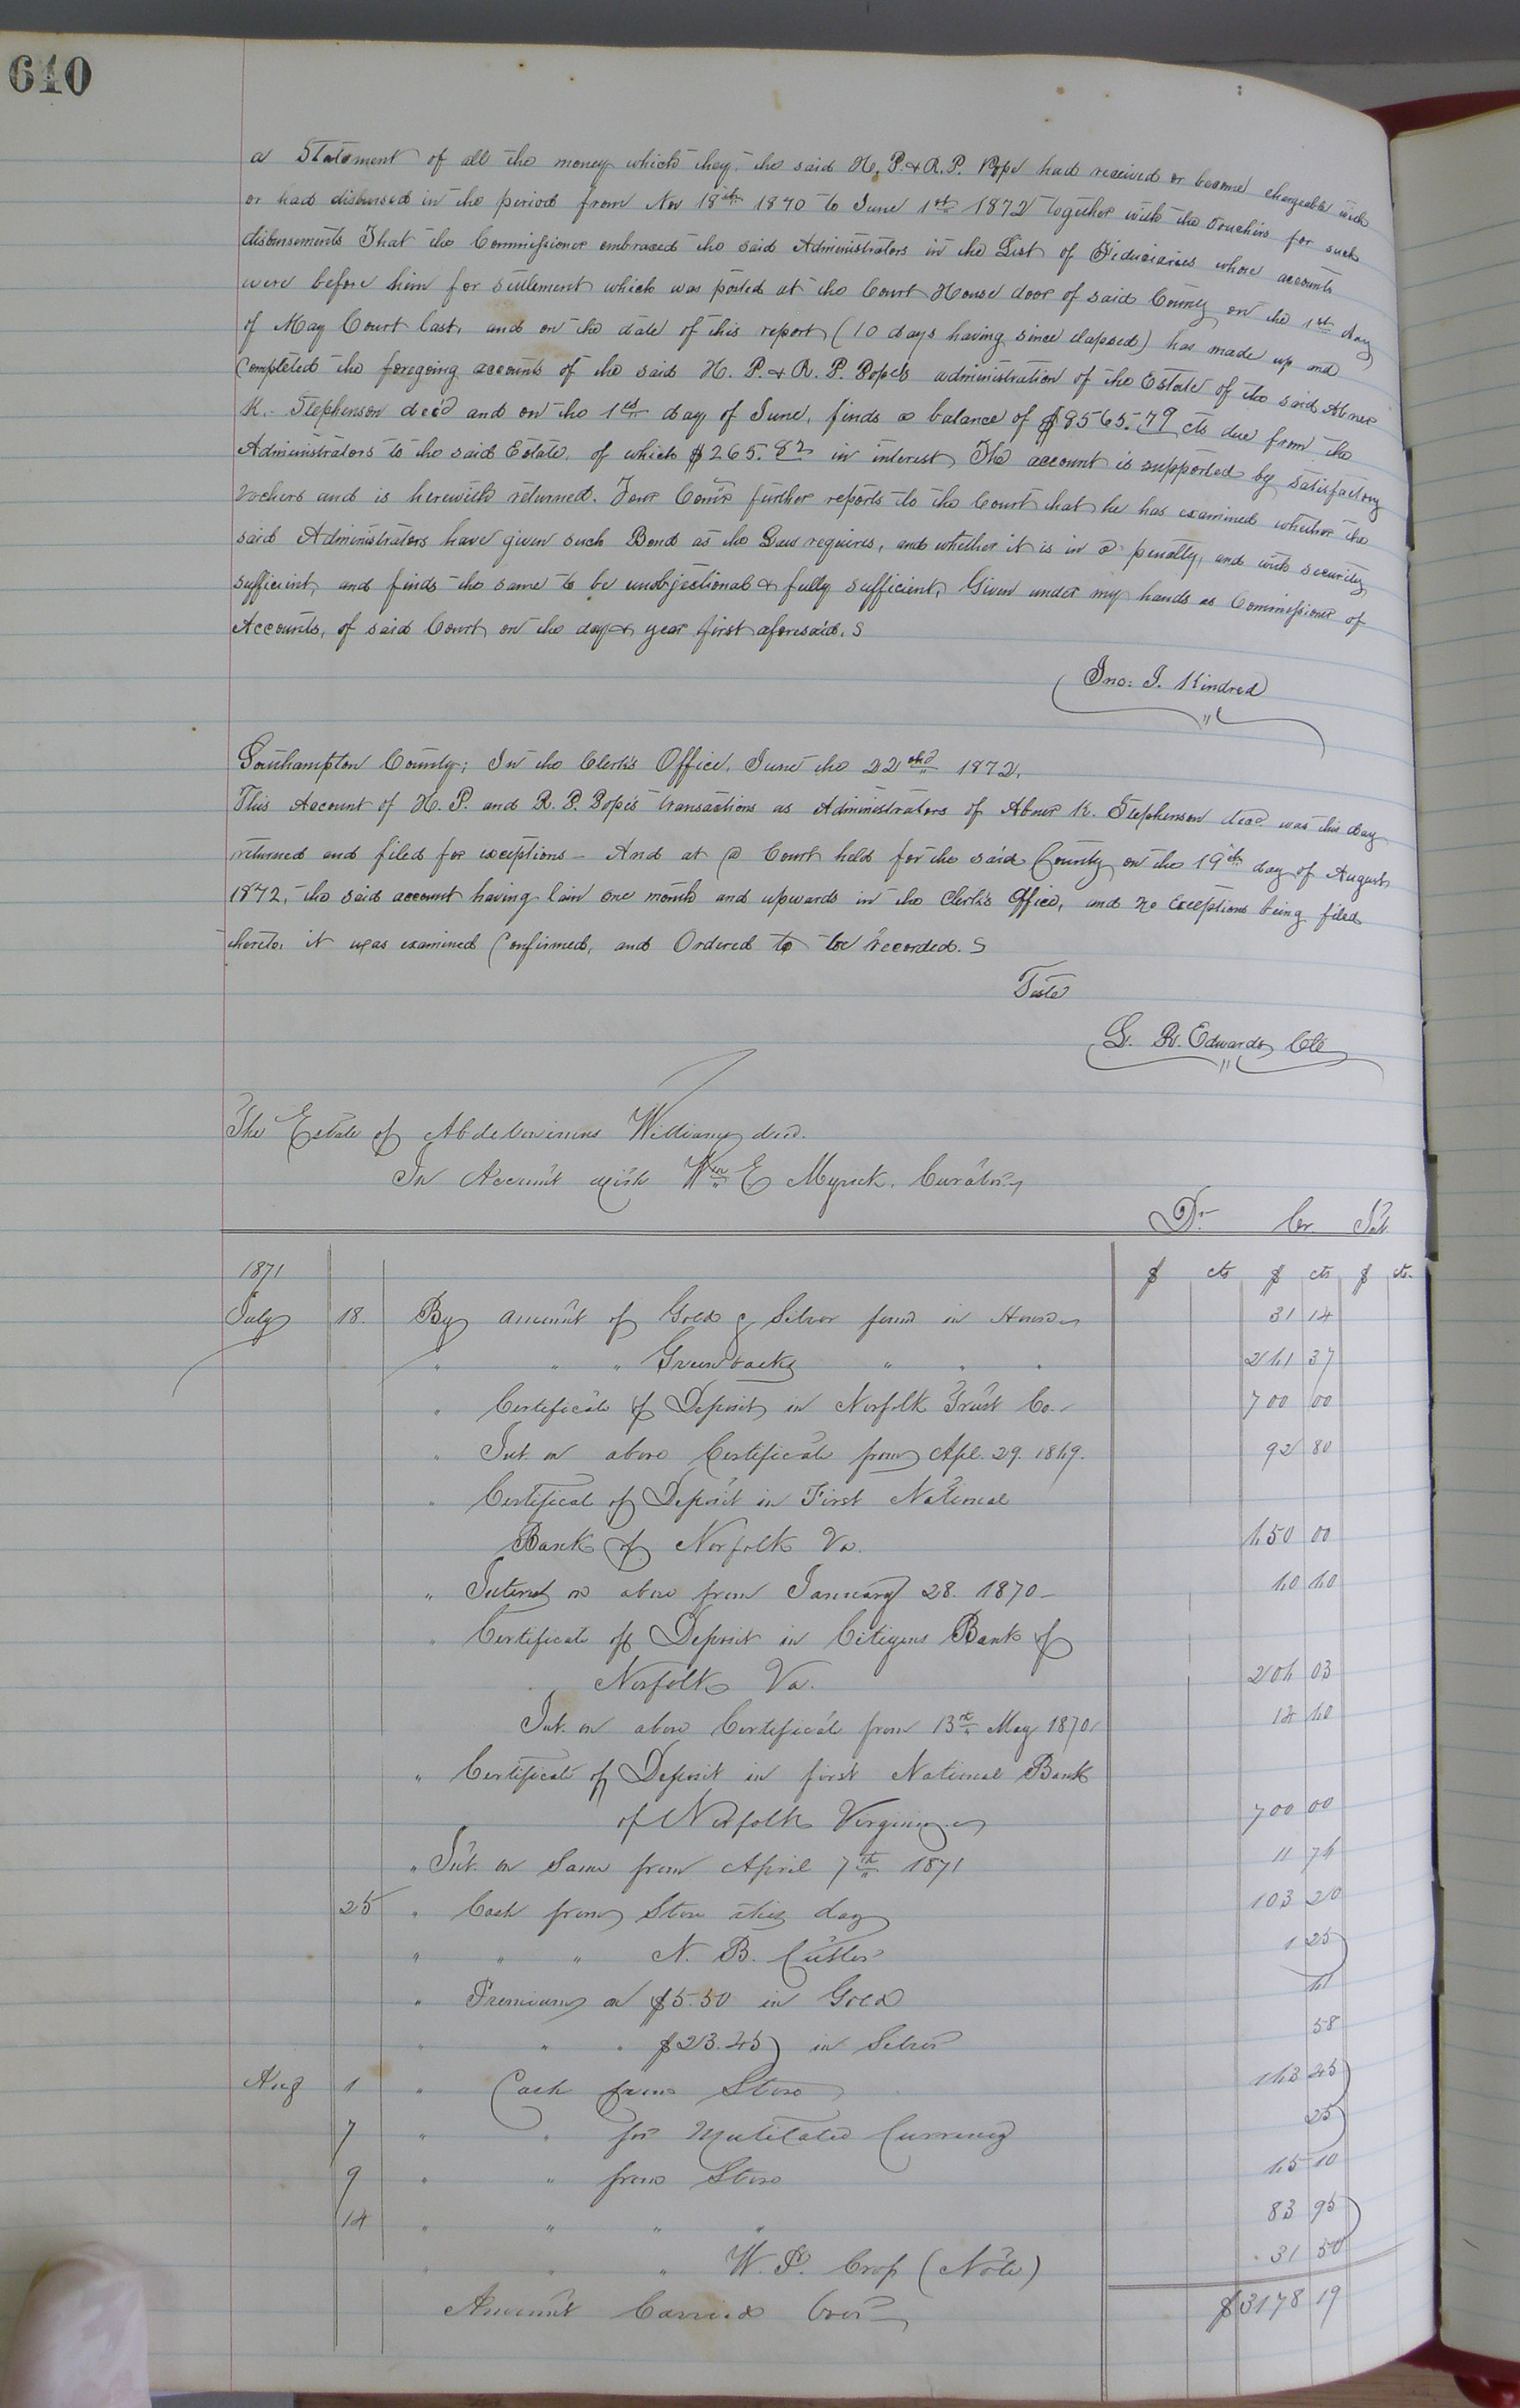 640
a Statement of all the money which they the said H. P. & R. P. Pope had received or become chargeable with
or had disbursed in the period from Nov 18th 1870 to June 1st 1872 together with the vouchers for such
disbursements That the Commissioner embraced the said Administrators in the List of Fiduciaries whose accounts
were before him for settlement which was posted at the Court House door of said County on the 1st day
of May Court last, and on the date of this report (10 days having since elapsed) has made up and
Completed the foregoing accounts of the said H. P. & R. P. Pope's administration of the Estate of the said Abner
K. Stephenson dec'd and on the 1st day of June, finds a balance of $8565.79 cts due from the
Administrators to the said Estate, of which $265.82 in interest, The account is supported by satisfactory
vochers and is herewith returned. Your Com'r further reports to the Court that he has examined whether the
said Administrators have given such Bond as the Law requires, and whether it is in a penalty, and with security
sufficient, and finds the same to be unobjectional & fully sufficient, Given under my hands as Commissioner of
Accounts, of said Court, on the day & year first aforesaid.
Jno: J. Kindred
Southampton County; In the Clerk's Office, June the 22nd 1872.
This Account of H. P. and R. P. Pope's transactions as Administrators of Abner K. Stephenson decd. was this day
returned and filed for exceptions - And at a Court held for the said County on the 19th day of August
1872, the said account having lain one month and upwards in the Clerk's Office, and no exceptions being filed
thereto, it was examined Confirmed, and Ordered to be recorded.
Teste
L. R. Edwards Clk
The Estate of Williams decd.
In Account with Wm E Myrick. Curator
Dr Cr Int.
1871 $ cts $ cts $ cts.
July 18. By amount of Gold & Silver found in House 31 14
" " " Greenbacks " " " 261 37
" Certificate of Deposit, in Norfolk Trust Co. 700 00
" Int. on above Certificate from Apl. 29. 1869. 92 80
" Certificate of Deposit in First National
Bank of Norfolk Va. 650 00
" Interest on above from January 28. 1870 - 60 60
" Certificate of Deposit in Citizens Bank of
Norfolk Va. 206 03
Int. on above Certificate from 13th May 1870 14 60
" Certificate of Deposit in first National Bank
of Norfolk Virginia 700 00
" Int. on Same from April 7th 1871 11 76
25 " Cash from Store this day 103 20
" " " N. B. Cutler 1 25
" Premium on $5.50 in Gold 61
" " " $23.45 in Silver 58
Aug 1 " Cash from Store 163 45
7 " " for Mutilated Currency 25
9 " " from Store 65 10
14 " " " " 83 95
" " " W. P. Crop (Note) 31 50
Amount Carried Over $3178 19